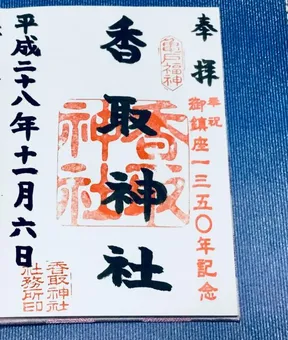 奉拝
奉祝
御鎮座一三五〇年記念
亀戸福神
香取神社
香取神社
平成二十八年十一月六日
香取神社
社務所印